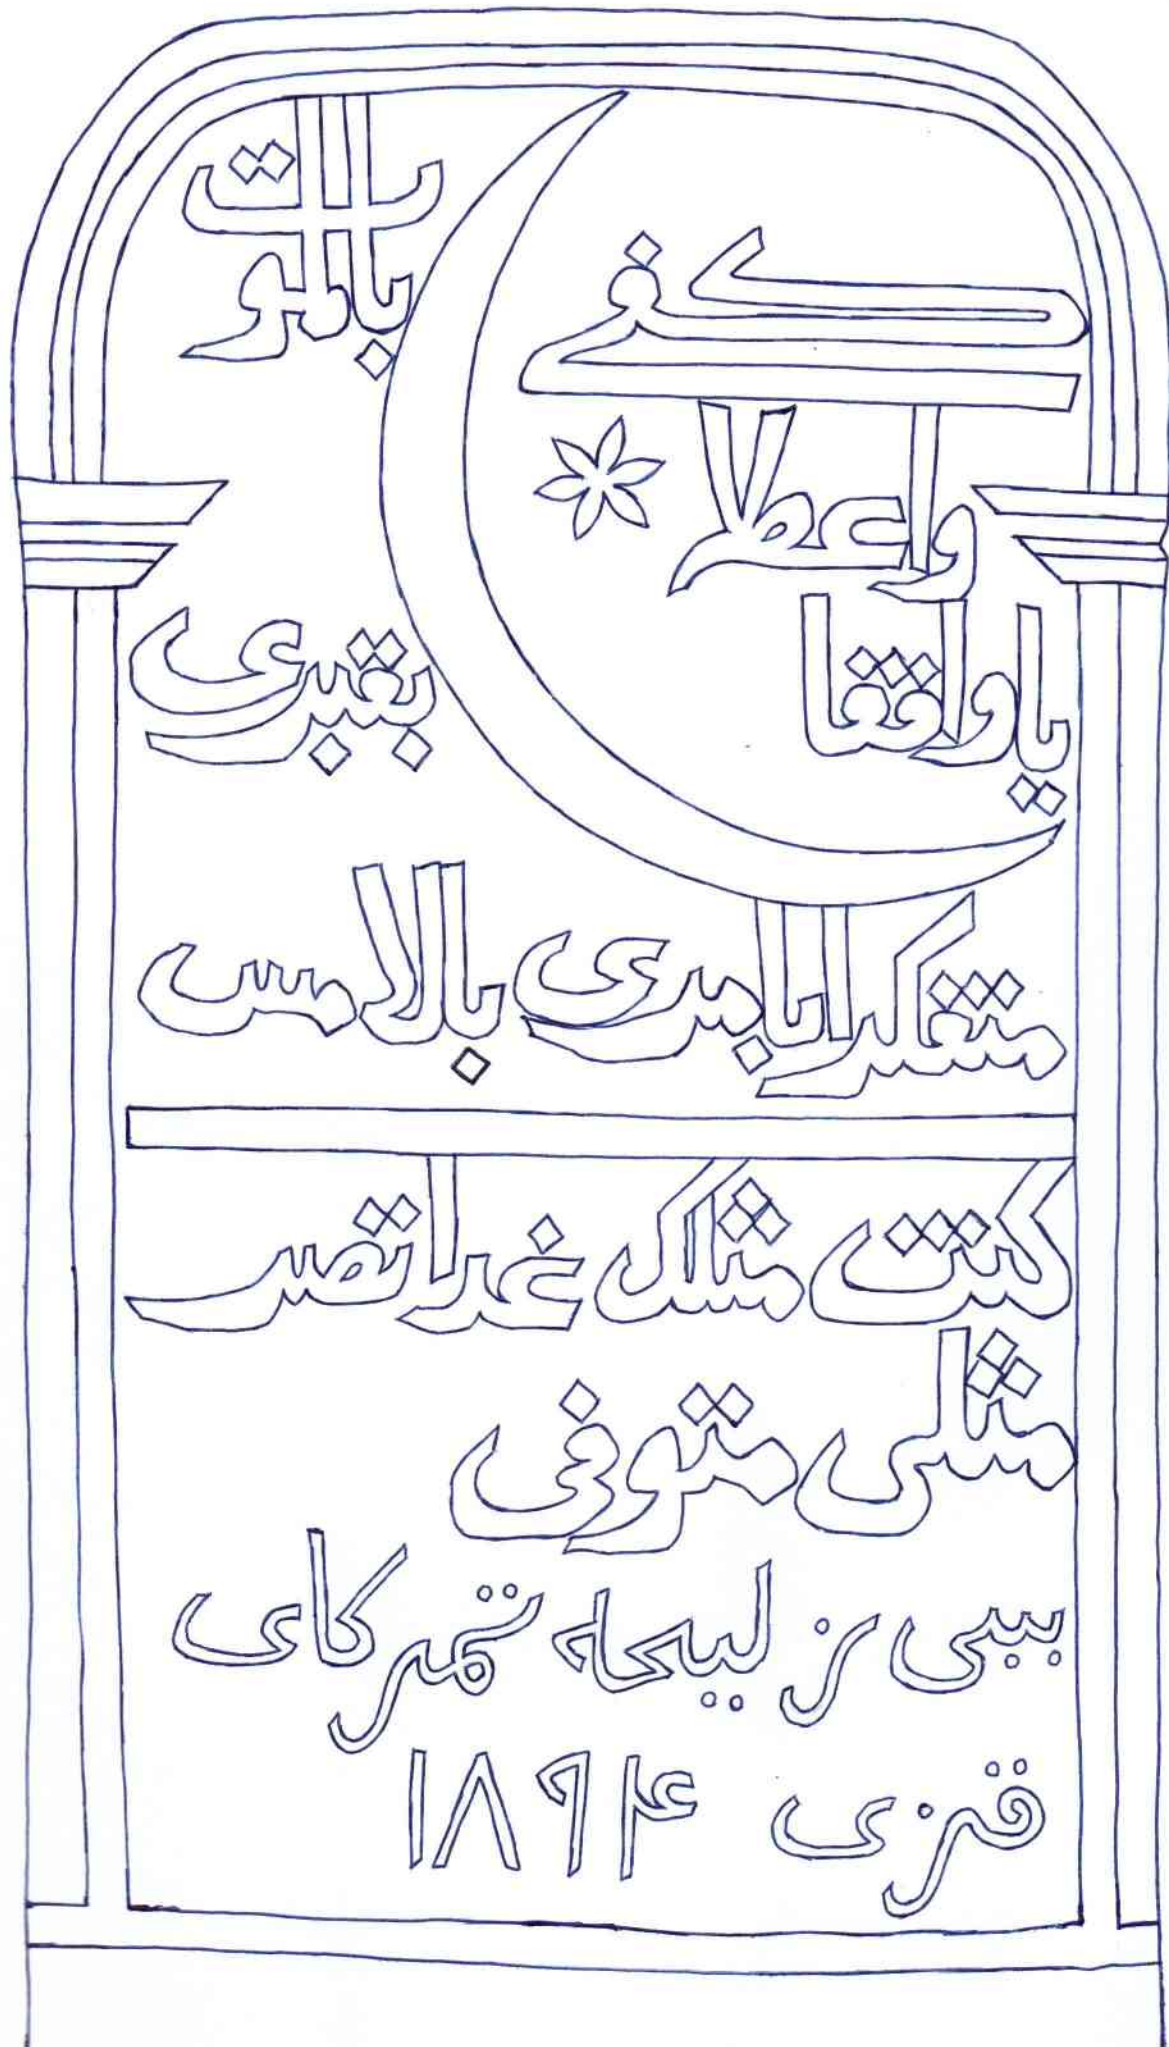 كفى بالموت
واعظا
يا واقفا بقبرى
متفكرا بامرى بالامس
كنت مثلك غدا تصير
مثلى متوفى
بيبى زليحه تمركاى
قزى ۱۸۹۴